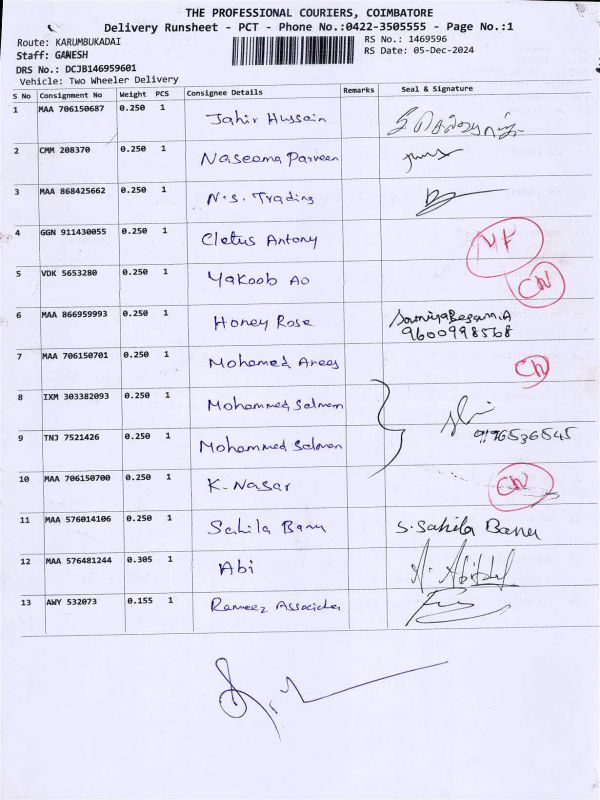 THE PROFESSIONAL COURIERS, COIMBATORE
Delivery Runsheet - PCT - Phone No.:0422-3505555 - Page No.:1
Route: KARUMBUKADAI RS No.: 1469596
Staff: GANESH RS Date: 05-Dec-2024
DRS No.: DCJB146959601
Vehicle: Two Wheeler Delivery
S No Consignment No Weight PCS Consignee Details Remarks Seal & Signature
1 MAA 706150687 0.250 1 Jahir Hussain
2 CMM 208370 0.250 1 Naseema Parveen
3 MAA 868425662 0.250 1 N.S. Trading
4 GGN 911430055 0.250 1 Cletus Antony
5 VDK 5653280 0.250 1 Yakoob Ao CN
6 MAA 866959993 0.250 1 Honey Rose
9600998568
7 MAA 706150701 0.250 1 Mohamed Anees CN
8 IXM 303382093 0.250 1 Mohammed Salman
9 TNJ 7521426 0.250 1 Mohammed Salman
10 MAA 706150700 0.250 1 K. Nasar CN
11 MAA 576014106 0.250 1 Sahila Banu S. Sahila Banu
12 MAA 576481244 0.305 1 Abi
13 AWY 532073 0.155 1 Rameez Associates